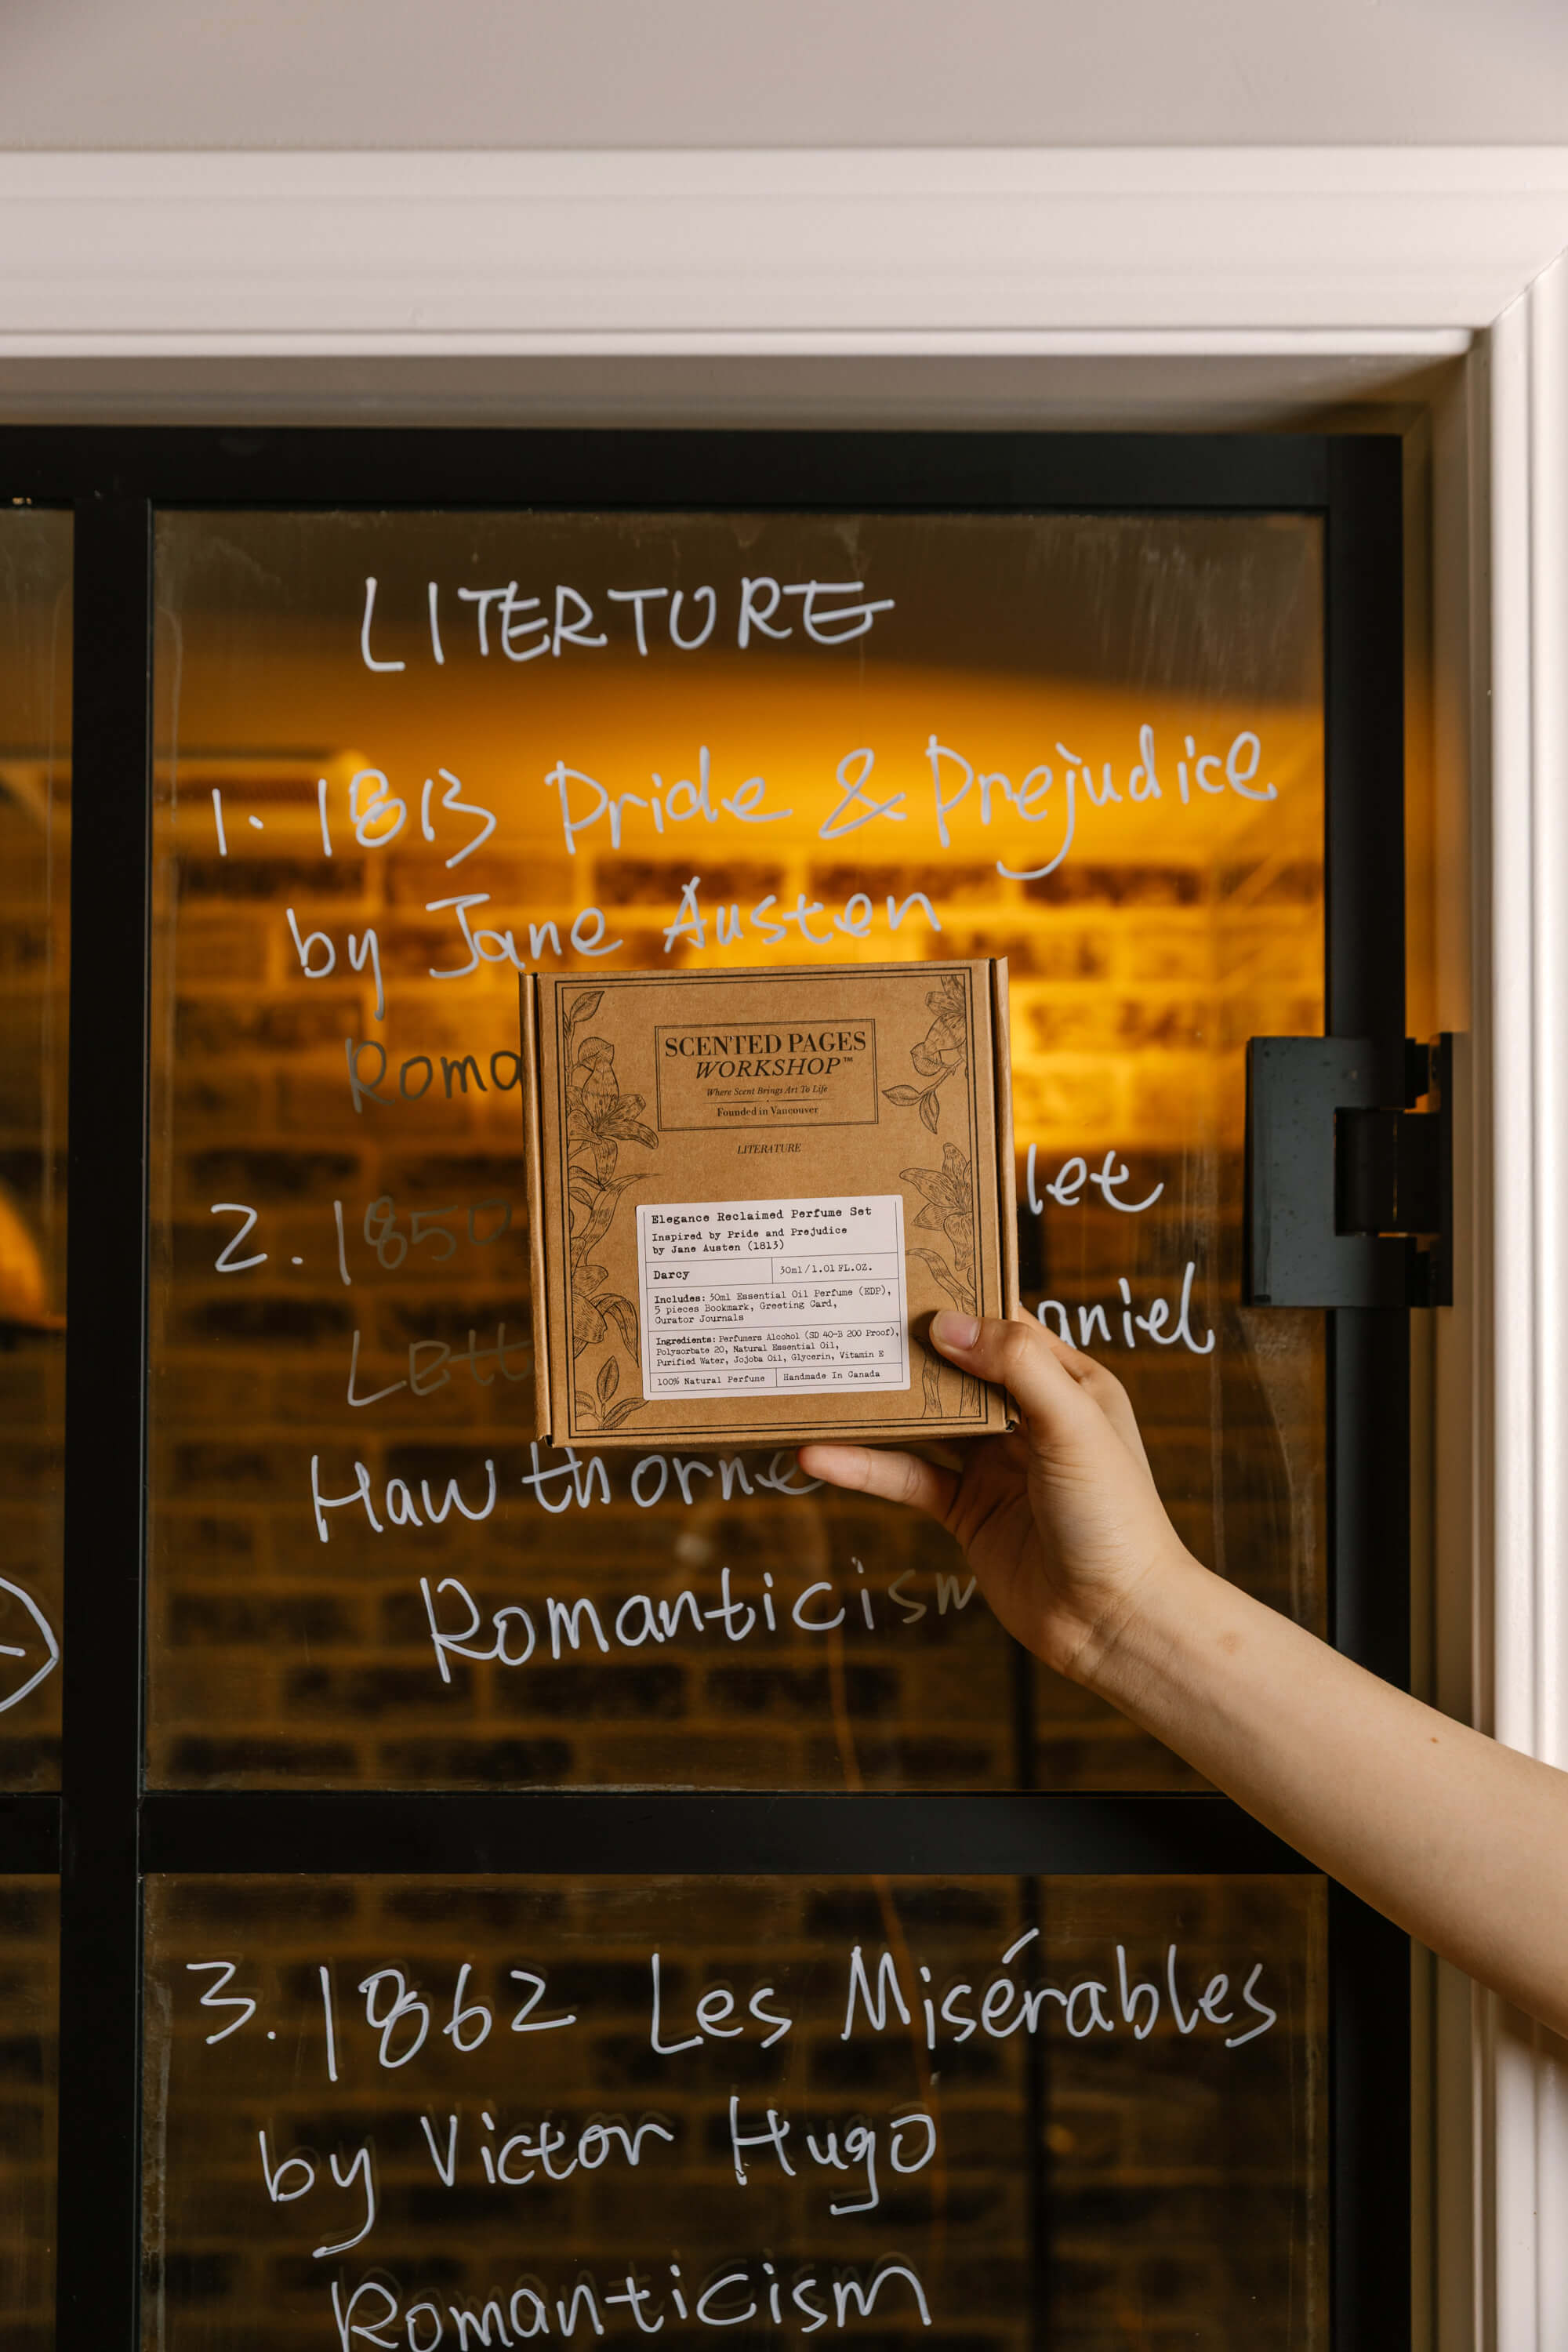 LITERTURE
1. 1813 Pride & Prejudice
by Jane Austen
Roma
SCENTED PAGES
WORKSHOP™
Where Scent Brings Art To Life
Founded in Vancouver
LITERATURE
Elegance Reclaimed Perfume Set
Inspired by Pride and Prejudice
by Jane Austen (1813)
Darcy 30ml/1.01 FL.OZ.
Includes: 30ml Essential Oil Perfume (EDP),
5 pieces Bookmark, Greeting Card,
Curator Journals
Ingredients: Perfumers Alcohol (SD 40-B 200 Proof),
Polysorbate 20, Natural Essential Oil,
Purified Water, Jojoba Oil, Glycerin, Vitamin E
100% Natural Perfume Handmade In Canada
2. 1850 let
Lett aniel
Hawthorne
Romanticism
3. 1862 Les Misérables
by Victor Hugo
Romanticism